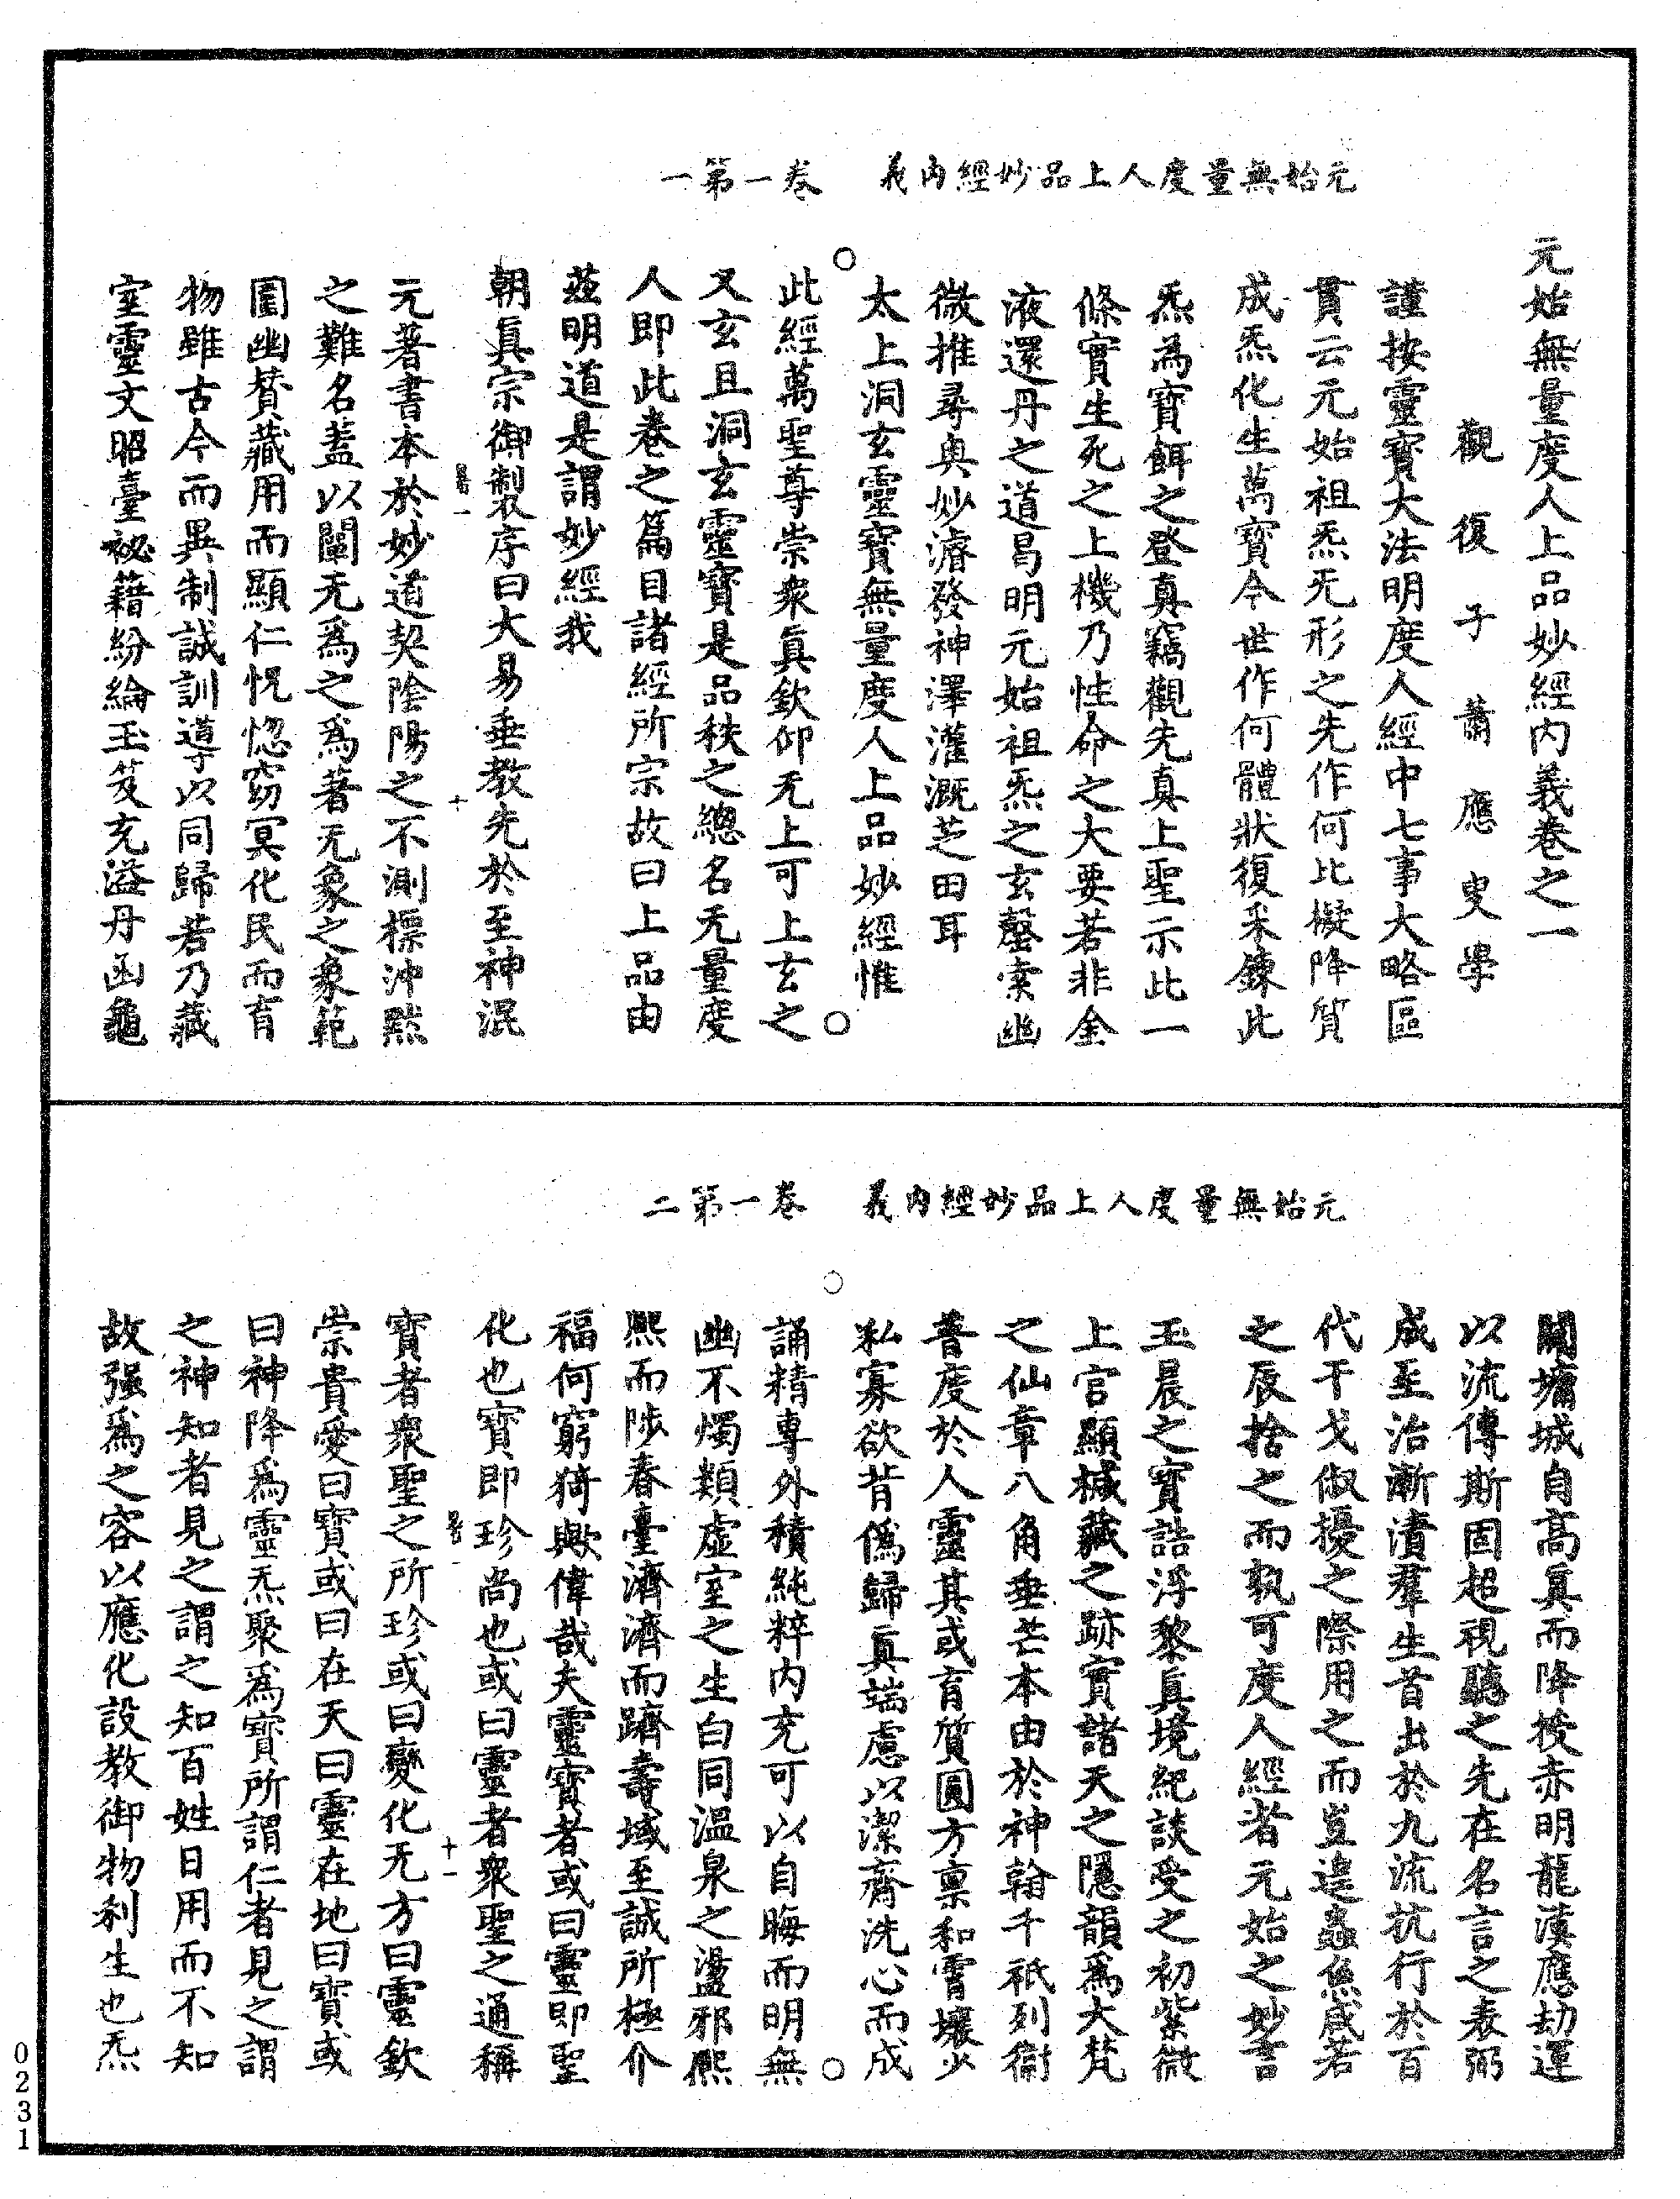 元始無量度人上品妙經內義　卷一第一
元始無量度人上品妙經內義卷之一
觀復子蕭應叟學
謹按靈寶大法明度人經中七事大略區
貫云元始祖炁无形之先作何比擬降質
成炁化生萬寶今世作何體狀復采鍊此
炁為寶餌之登真竊觀先真上聖示此一
條實生死之上機乃性命之大要若非金
液還丹之道曷明元始祖炁之玄罄索幽
微推尋奧妙濬發神澤灌溉芝田耳
太上洞玄靈寶無量度人上品妙經惟
此經萬聖尊崇衆真欽仰无上可上玄之
又玄且洞玄靈寶是品秩之總名无量度
人即此卷之篇目諸經所宗故曰上品由
茲明道是謂妙經我
朝真宗御製序曰大易垂教先於至神混
元著書本於妙道契陰陽之不測標沖黙
之難名蓋以闡无爲之爲著无象之象範
圍幽贊藏用而顯仁怳惚窈冥化民而育
物雖古今而異制誠訓導以同歸若乃藏
室靈文昭臺祕籍紛綸玉笈充溢丹函龜
元始無量度人上品妙經內義　卷一第二
闕墉城自高真而降授赤明龍漢應劫運
以流傳斯固超視聽之先在名言之表弼
成至治漸漬羣生首出於九流抗行於百
代干戈俶擾之際用之而豈遑螽 咸若
之辰捨之而孰可度人經者元始之妙言
玉晨之寶誥浮黎真境紀談受之初紫微
上宮顯緘藏之跡實諸天之隱韻爲大梵
之仙章八角垂芒本由於神翰千祇列衞
普度於人靈其或育質圓方禀和霄壤少
私寡欲背僞歸真端慮以潔齋洗心而成
誦精專外積純粹內充可以自晦而明無
幽不燭類虛室之生白同溫泉之盪邪熙
熙而陟春臺濟濟而躋壽域至誠所極介
福何窮猗歟偉哉夫靈寶者或曰靈即聖
化也寶即珍尚也或曰靈者衆聖之通稱
寶者衆聖之所珍或曰變化无方曰靈欽
崇貴愛曰寶或曰在天曰靈在地曰寶或
曰神降爲靈炁聚爲寶所謂仁者見之謂
之神知者見之謂之知百姓日用而不知
故强爲之容以應化設教御物利生也炁
0231